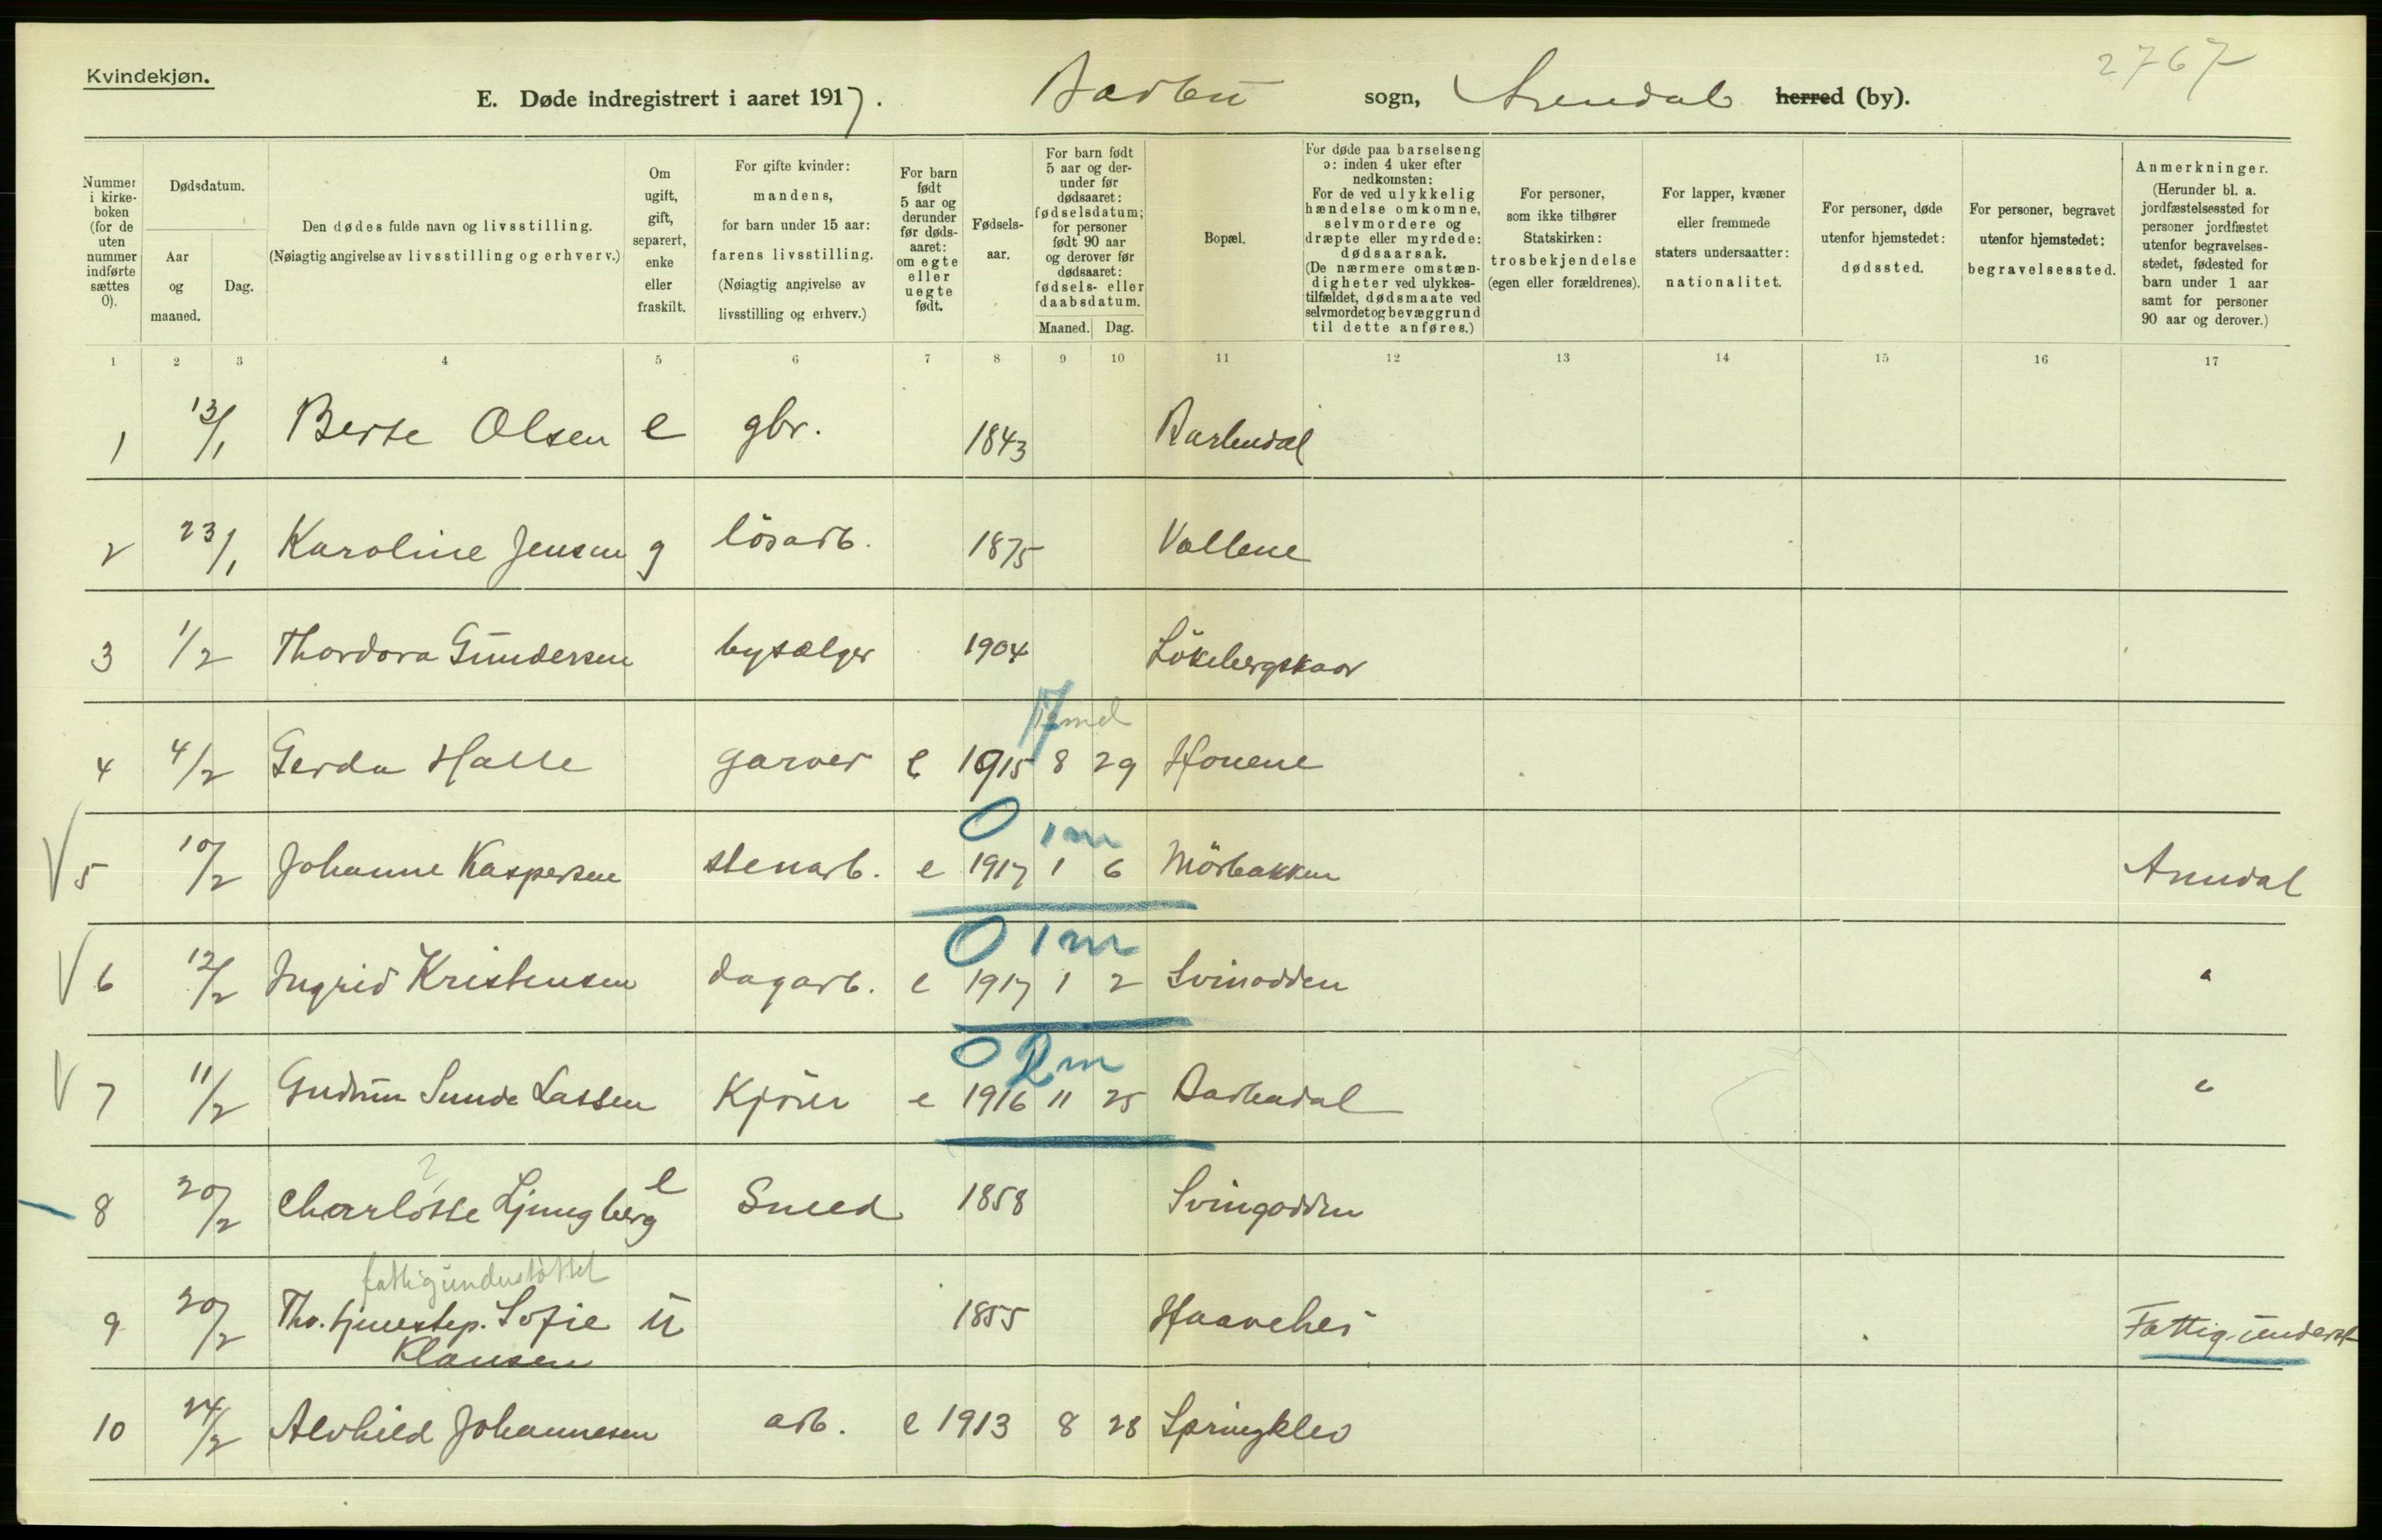 Kvindekjøn.
2767
E. Døde indregistrert i aaret 1917. Barbu sogn, Arendal herred (by).
Nummer i kirkeboken (for de uten nummer indførte sættes 0).
Dødsdatum.
Aar og maaned.
Dag.
Den dødes fulde navn og livsstilling.
(Nøiagtig angivelse av livsstilling og erhverv.)
Om ugift, gift, separert, enke eller fraskilt.
For gifte kvinder: mandens, for barn under 15 aar: farens livsstilling. (Nøiagtig angivelse av livsstilling og erhverv.)
For barn født 5 aar og derunder før dødsaaret: om egte eller uegte født.
Fødselsaar.
For barn født 5 aar og derunder før dødsaaret: fødselsdatum; for personer født 90 aar og derover før dødsaaret: fødsels- eller daabsdatum.
Maaned. Dag.
Bopæl.
For døde paa barselseng ɔ: inden 4 uker efter nedkomsten: For de ved ulykkelig hændelse omkomne, selvmordere og dræpte eller myrdede: dødsaarsak. (De nærmere omstændigheter ved ulykkestilfældet, dødsmaate ved selvmordet og bevæggrund til dette anføres.)
For personer, som ikke tilhører Statskirken: trosbekjendelse (egen eller forældrenes).
For lapper, kvæner eller fremmede staters undersaatter: nationalitet.
For personer, døde utenfor hjemstedet: dødssted.
For personer, begravet utenfor hjemstedet: begravelsessted.
Anmerkninger.
(Herunder bl. a. jordfæstelsessted for personer jordfæstet utenfor begravelsesstedet, fødested for barn under 1 aar samt for personer 90 aar og derover.)
1 2 3 4 5 6 7 8 9 10 11 12 13 14 15 16 17
1 13/1 Berte Olsen e gbr. 1843 Barbudal
2 23/1 Karoline Jensen g lösarb. 1875 Vollene
3 1/2 Thordora Gundersen bysælger 1904 Lökebergskaar
17 md
4 4/2 Gerda Halle garver e 1915 8 29 Houene
0 1 m
V 5 10/2 Johanne Kaspersen stenarb. e 1917 1 6 Mörbakken Arendal
0 1 m
V 6 12/2 Ingrid Kristensen dagarb. e 1917 1 2 Svinodden "
0 2 m
V 7 11/2 Gudrun Sunde Lassen Kjörer e 1916 11 25 Barbudal "
?
8 20/2 Charlotte Ljungberg e Smed 1858 Svingodden
fattigunderstöttet
9 20/2 Fhv. tjenestep. Sofie u 1855 Fattig-underst
Klausen
10 24/2 Alvhild Johannesen arb. e 1913 8 28 Springklev